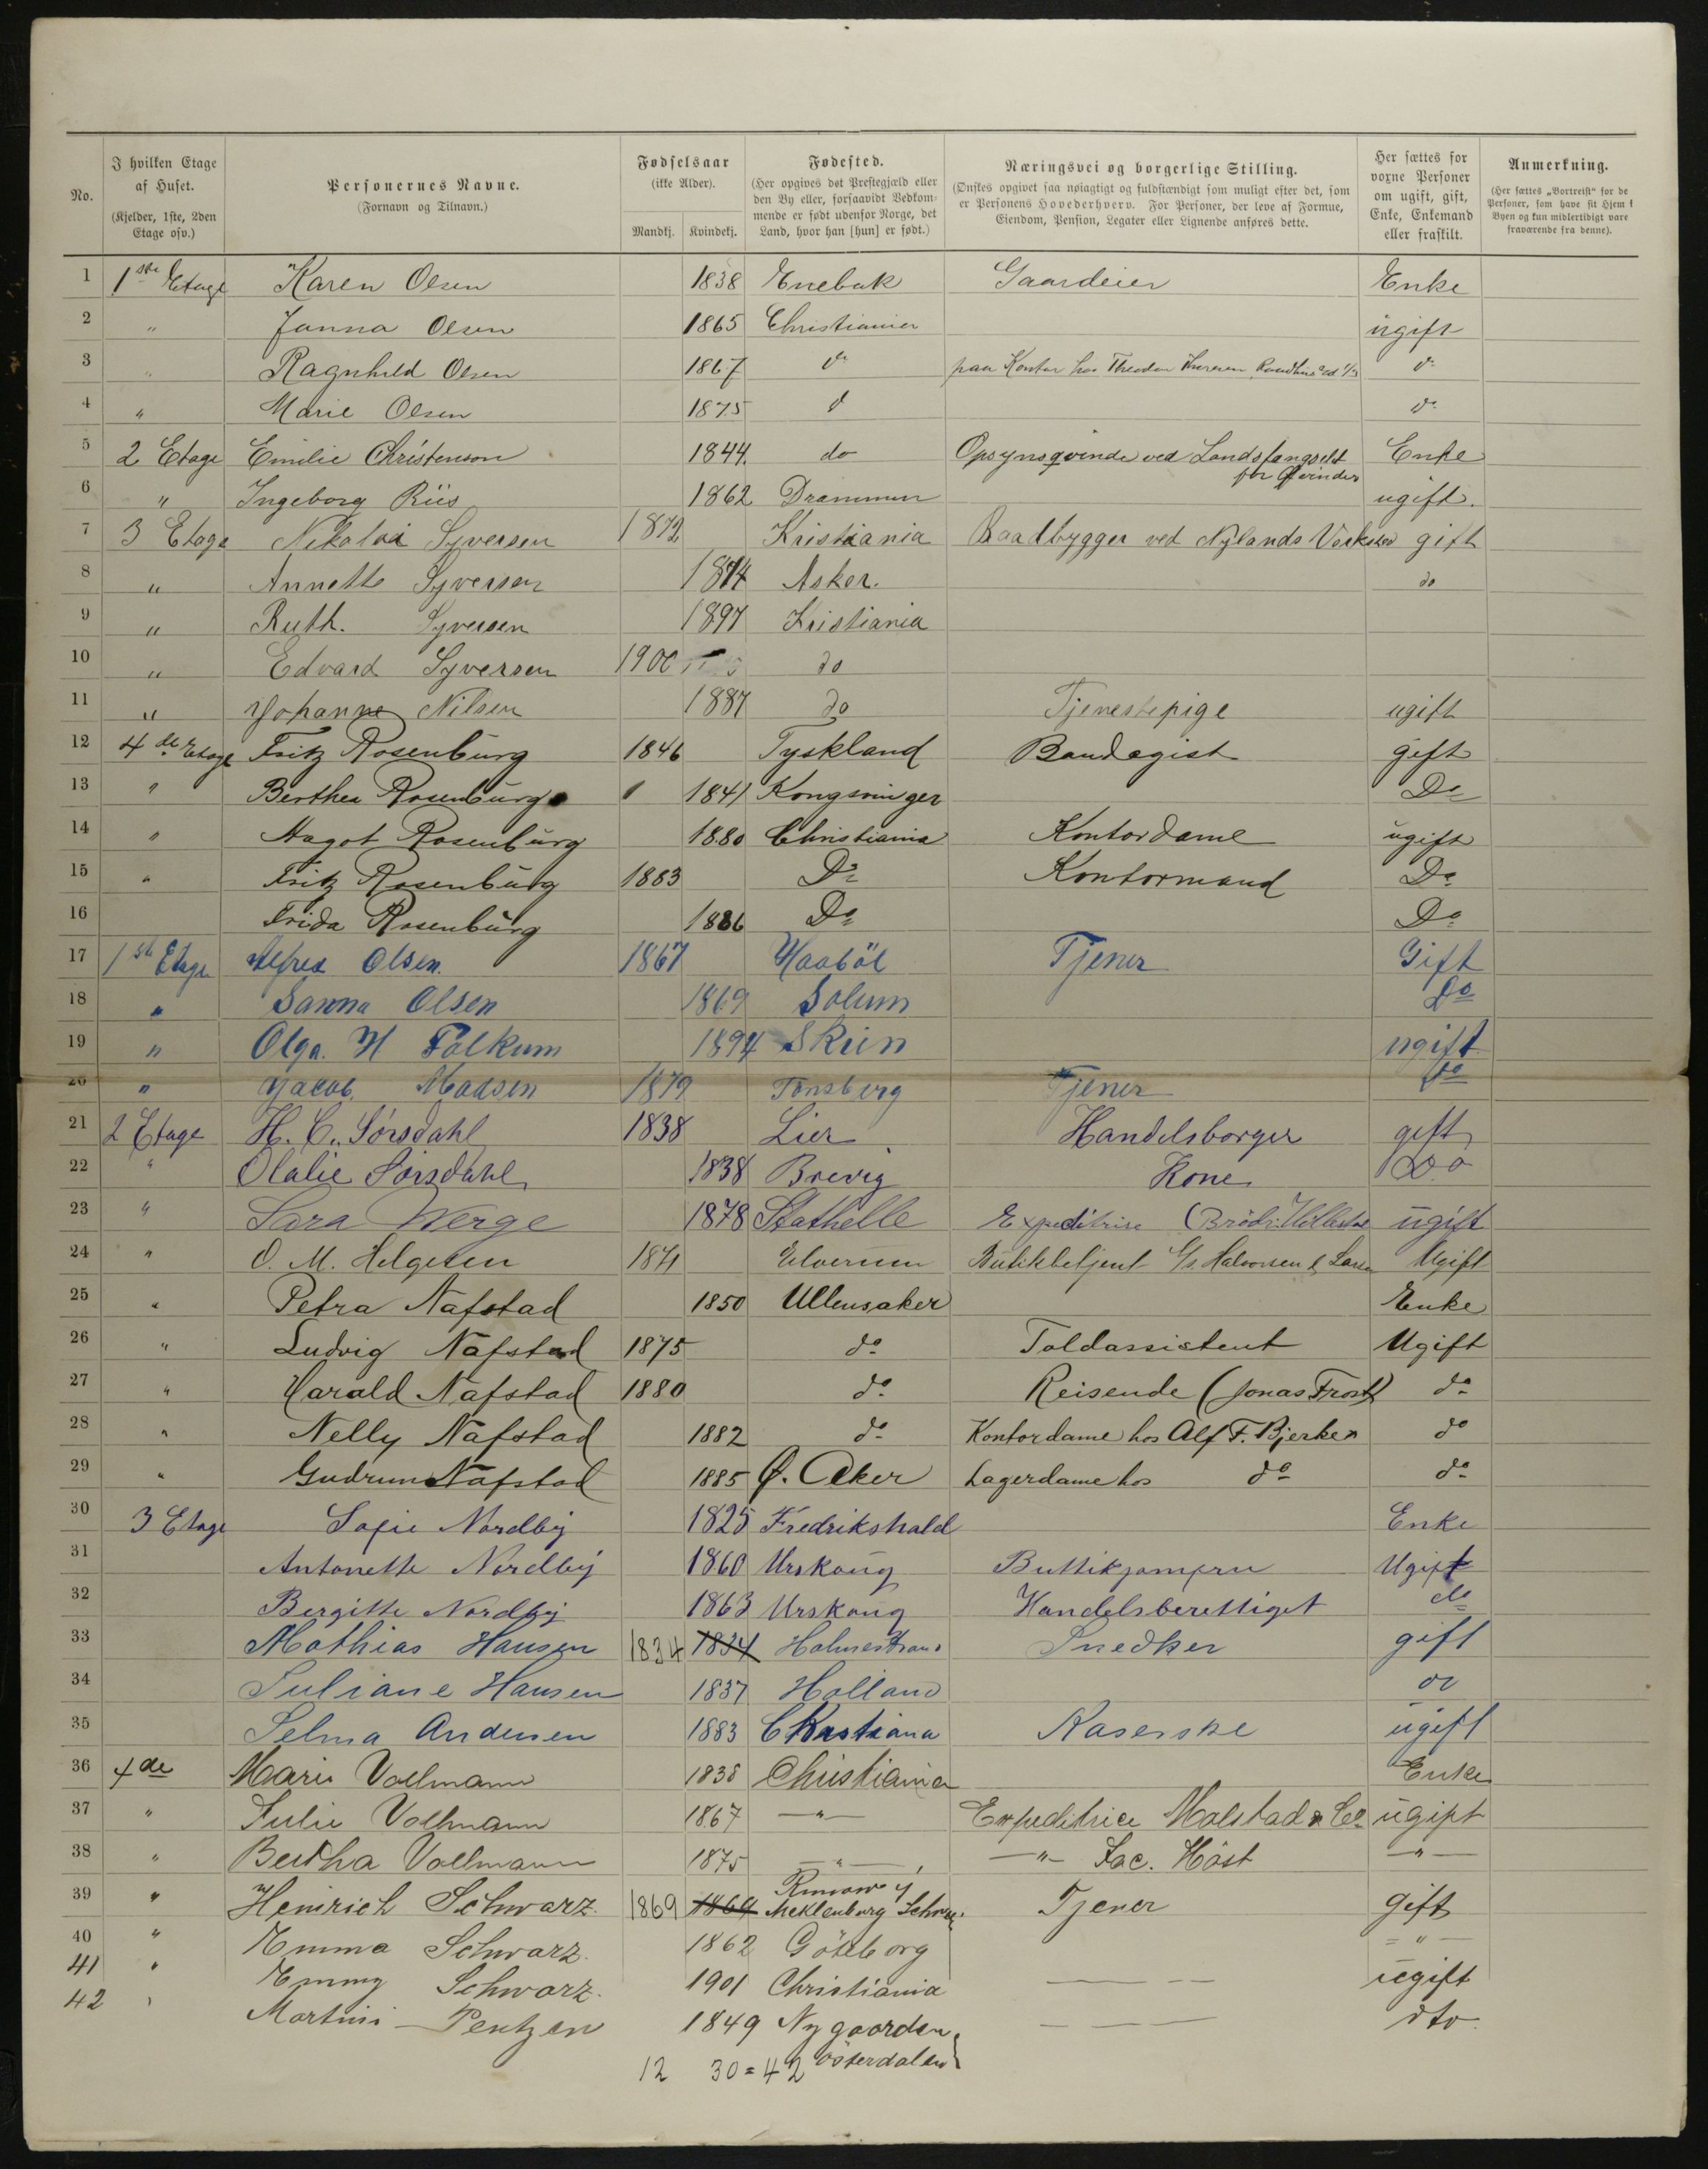 No.
I hvilken Etage af Huset. (Kjelder, 1ste, 2den Etage osv.)
Personernes Navne. (Fornavn og Tilnavn.)
Fødselsaar (ikke Alder). Mandkj. Kvindekj.
Fødested. (Her opgives det Prestegjæld eller den By eller, forsaavidt Vedkommende er født udenfor Norge, det Land, hvor han [hun] er født.)
Næringsvei og borgerlige Stilling. (Ønskes opgivet saa nøiagtigt og fuldstændigt som muligt efter det, som er Personens Hovederhverv. For Personer, der leve af Formue, Eiendom, Pension, Legater eller Lignende anføres dette.
Her sættes for voxne Personer om ugift, gift, Enke, Enkemand eller fraskilt.
Anmerkning. (Her sættes „Bortreist“ for de Personer, som have sit Hjem i Byen og kun midlertidigt vare fraværende fra denne).
1 1ste Etage Karen Olsen 1838 Enebak Gaardeier Enke
2 " Janna Olsen 1865 Christiania ugift
3 " Ragnhild Olsen 1867 do paa Kontor hos Theodor do
4 " Marie Olsen 1875 d do
5 2 Etage Emilie Christenson 1844. do Opsynsqvinde ved Landsfangselet for Qvinder Enke
6 " Ingeborg Riis 1862 Drammen ugift.
7 3 Etage Nikolai Syversen 1872 Kristiania Baadbygger ved Nylands Verksted gift
8 " Annette Syversen 1874 Asker. do
9 " Ruth. Syversen 1897 Kristiania
10 " Edvard Syversen 1900 do
11 " Johanne Nilsen 1887 do Tjenestepige ugift
12 4de Etage Fritz Rosenburg 1846 Tyskland Bandagist gift
13 " Berthea Rosenburg 1841 Kongsvinger Do
14 " Magot Rosenburg 1880 Christiania Kontordame ugift
15 " Fritz Rosenburg 1883 Do Kontormand Do
16 Frida Rosenburg 1886 Do Do
17 1ste Etage Alfred Olsen. 1867 Haaböl Tjener Gift
18 " Sanna Olsen 1869 Solum Do
19 " Olga. H Falkum 1894 Skien ugift
20 " Jacob. Madsen 1879 Tønsberg Tjener do
21 2 Etage H. C. Sørsdahl 1838 Lier Handelsborger gift
22 " Olalie Sørsdahl 1838 Brevig Kone Do
23 " Sara Werge 1878 Stathelle Expeditrise (Brödr. ugift
24 " O. M. Helgesen 1871 Elverum Butikbetjent Halvorsen & Larsen Ugift
25 " Petra Nafstad 1850 Ullensaker Enke
26 " Ludvig Nafstad 1875 do Toldassistent Ugift
27 " Harald Nafstad 1880 do Reisende (Jonas Frost) do
28 " Nelly Nafstad 1882 do Kontordame hos Alf F. Bjerke do
29 " Gudrun Nafstad 1885 Ø. Aker Lagerdame hos do do
30 3 Etage Sofie Nordby 1825 Fredrikshald Enke
31 Antonette Nordby 1860 Urskoug Buttikjomfru Ugift
32 Bergitte Nordby 1863 Urskoug Handelsberettiget do
33 Mathias Hansen 1834 1834 Holmestrand Snedker gift
34 Juliane Hansen 1837 Holland do
35 Selma Andersen 1883 Christiana Kaserske ugift
36 4de Marie Vollmann 1838 Christiania Enke
37 " Julie Vollmann 1867 — " — Expeditrice Molstad & Co ugift
38 " Bertha Vollmann 1875 — " — — " — Jac. Höst — " —
39 " Heinrich Schwarz. 1869 1869 Meklenburg Schwe. Tjener gift
40 " Emma Schwarz. 1862 Göteborg — " —
41 " Emmy Schwarz. 1901 Christiania — — — ugift
42 " Martini Pentzen 1849 Nygaarden Österdalen — — — dto
12 30 = 42